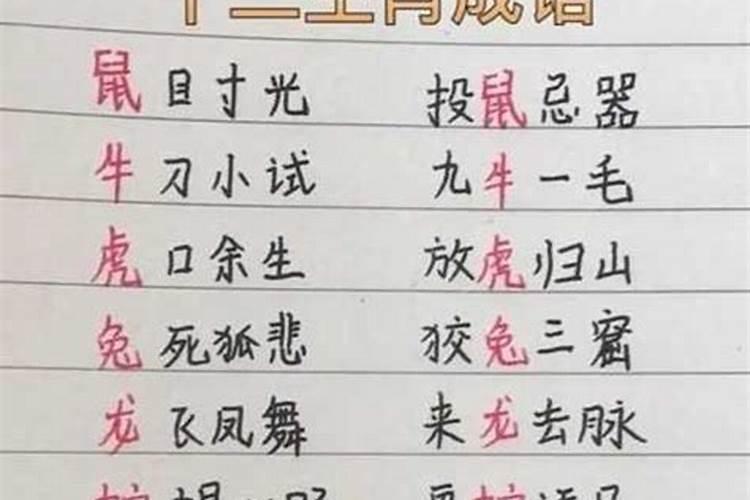 十二生肖成语
鼠目寸光 投鼠忌器
牛刀小试 九牛一毛
虎口余生 放虎归山
兔死狐悲 狡兔三窟
龙飞凤舞 来龙去脉